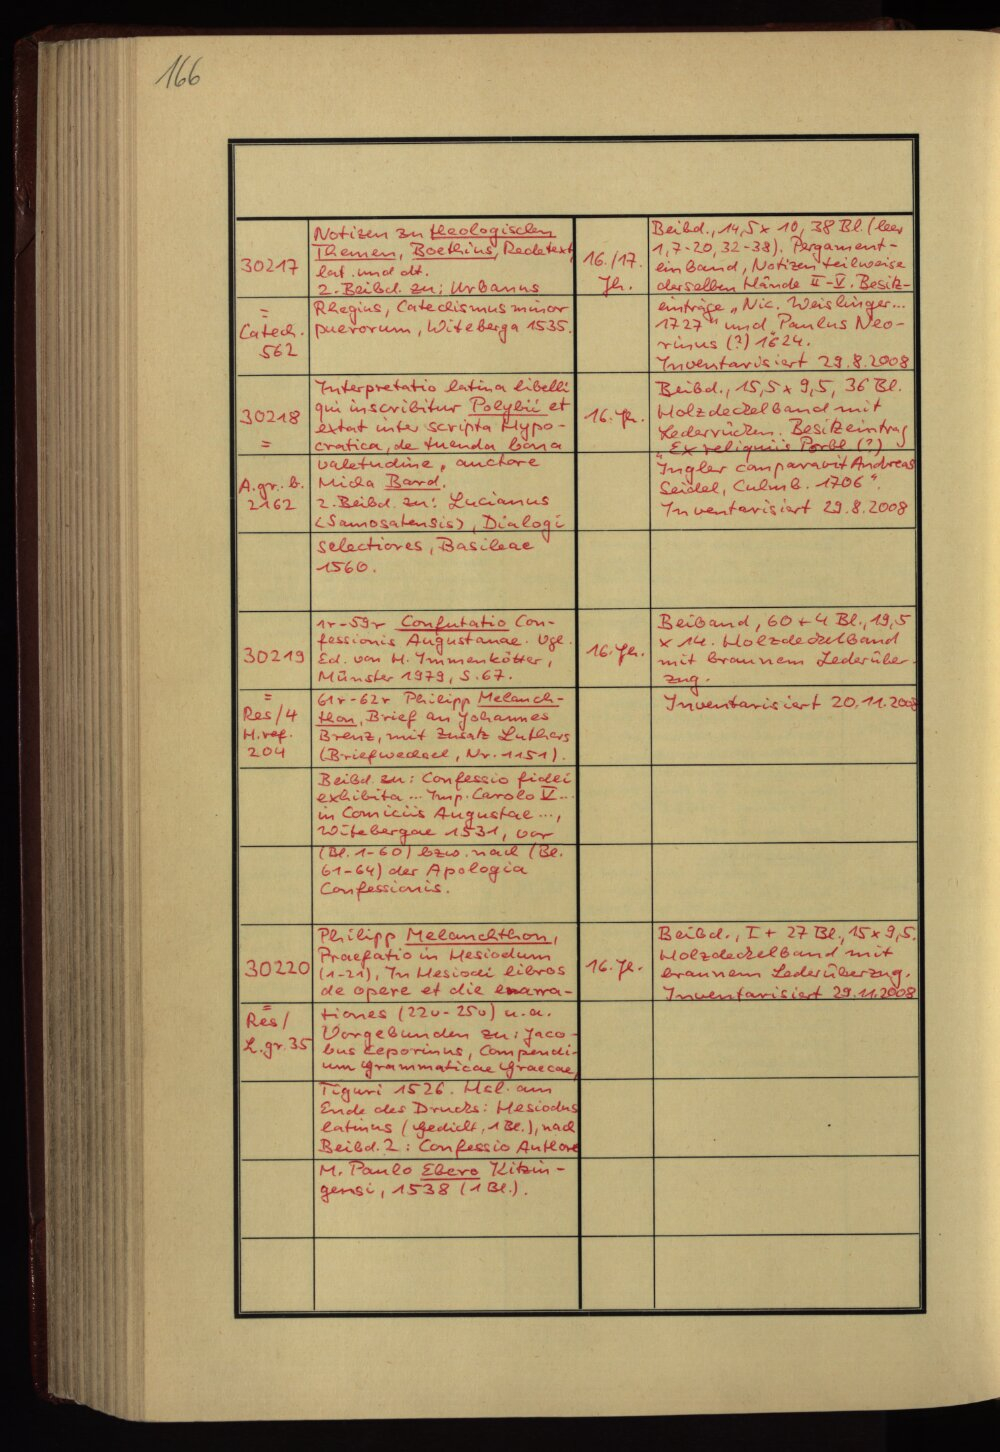 166
30217
=
Catech.
562
Notizen zu theologischen
Themen, Boethius, Redetext
lat. und dt.
2. Beibd. zu: Urbanus
Rhegius, Catechismus minor
puerorum, Witeberga 1535.
16./17.
Jh.
Beibd., 14,5 x 10, 38 Bl. (leer
1, 7-20, 32-38). Pergament-
einband, Notizen teilweise
derselben Hände II-V. Besitz-
einträge „Nic. Weislinger...
1727" und „Paulus Neo-
rinus (?) 1624.
Inventarisiert 29.8.2008
30218
=
A.gr.b.
2162
Interpretatio latina libelli
qui inscribitur Polybii et
extat inter scripta Hypo-
cratica, de tuenda bona
valetudine, auctore
Micla Bard.
2. Beibd. zu: Lucianus
(Samosatensis), Dialogi
selectiores, Basileae
1560.
16. Jh.
Beibd., 15,5 x 9,5, 36 Bl.
Holzdeckelband mit
Lederrücken. Besitzeintrag
„Ex reliquiis Porbl (?)
Ingler conparavit Andreas
Seidel, Culmb. 1706".
Inventarisiert 29.8.2008
30219
=
Res/4
H.ref.
204
1r-59r Confutatio Con-
fessionis Augustanae. Vgl.
Ed. von H. Immenkötter,
Münster 1979, S. 67.
61r-62r Philipp Melanch-
thon, Brief an Johannes
Brenz, mit Zusatz Luthers
(Briefwechsel, Nr. 1151).
Beibd. zu: Confessio fidei
exhibita ... Imp. Carolo V...
in Comiciis Augustae ...,
Witebergae 1531, vor
(Bl. 1-60) bzw. nach (Bl.
61-64) der Apologia
Confessionis.
16. Jh.
Beiband, 60 + 4 Bl., 19,5
x 14. Holzdeckelband
mit braunem Lederüber-
zug.
Inventarisiert 20.11.2008
30220
=
Res/
L.gr.35
Philipp Melanchthon,
Praefatio in Hesiodum
(1-21), In Hesiodi libros
de opere et die enarra-
tiones (22v-25v) u.a.
Vorgebunden zu: Jaco-
bus Ceporinus, Compendi-
um Grammaticae Graecae,
Tiguri 1526. Hsl. am
Ende des Drucks: Hesiodus
latinus (Gedicht, 1 Bl.), nach
Beibd. 2: Confessio Authore
M. Paulo Ebero Kitzin-
gensi, 1538 (1 Bl.).
16. Jh.
Beibd., I + 27 Bl., 15 x 9,5.
Holzdeckelband mit
braunem Lederüberzug.
Inventarisiert 29.11.2008